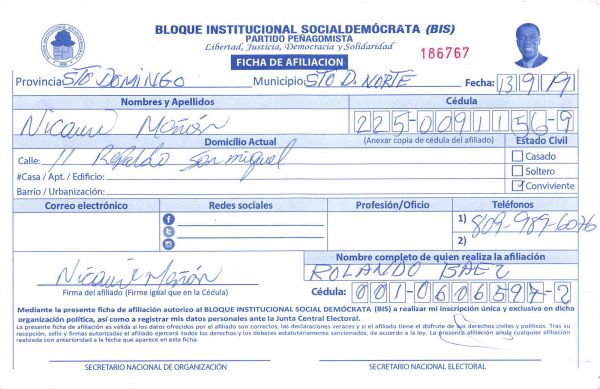 BLOQUE INSTITUCIONAL SOCIALDEMÓCRATA (BIS)
PARTIDO PEÑAGOMISTA
Libertad, Justicia, Democracia y Solidaridad
186767
FICHA DE AFILIACION
Provincia: STO DOMINGO Municipio: STO D. NORTE Fecha: 13 9 19
Nombres y Apellidos Cédula
Moñón 225-0091156-9
Domicilio Actual (Anexar copia de cédula del afiliado) Estado Civil
Calle: 11 Respaldo San Miguel Casado
#Casa / Apt. / Edificio: Soltero
Barrio / Urbanización: Conviviente
Correo electrónico Redes sociales Profesión/Oficio Teléfonos
1) 809-989-6076
2)
Nombre completo de quien realiza la afiliación
Moñón ROLANDO BAEZ
Firma del afiliado (Firme igual que en la Cédula) Cédula: 001-0606597-2
Mediante la presente ficha de afiliación autorizo al BLOQUE INSTITUCIONAL SOCIAL DEMÓCRATA (BIS) a realizar mi inscripción única y exclusiva en dicha
organización política, así como a registrar mis datos personales ante la Junta Central Electoral.
La presente ficha de afiliación es válida si los datos ofrecidos por el afiliado son correctos, las declaraciones veraces y si el afiliado tiene el disfrute de sus derechos civiles y políticos. Tras su
recepción, sello y firmas autorizadas el afiliado ejercerá todos los derechos y los deberes estatutariamente sancionados, de acuerdo a la ley. La presente afiliación anula cualquier afiliación
realizada con anterioridad a la fecha que aparece en esta ficha.
SECRETARIO NACIONAL DE ORGANIZACIÓN SECRETARIO NACIONAL ELECTORAL